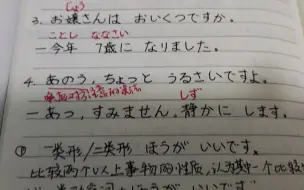 じょう
3. お嬢さんは おいくつですか。
ことし ななさい
ー今年 7歳に なりました。
4. あのう,ちょっと うるさいですよ。
しず
ーあっ,すみません,静かに します。
① 一类形/二类形 ほうが いいです。
比较两个以上事物的性质,认为其中一个比较